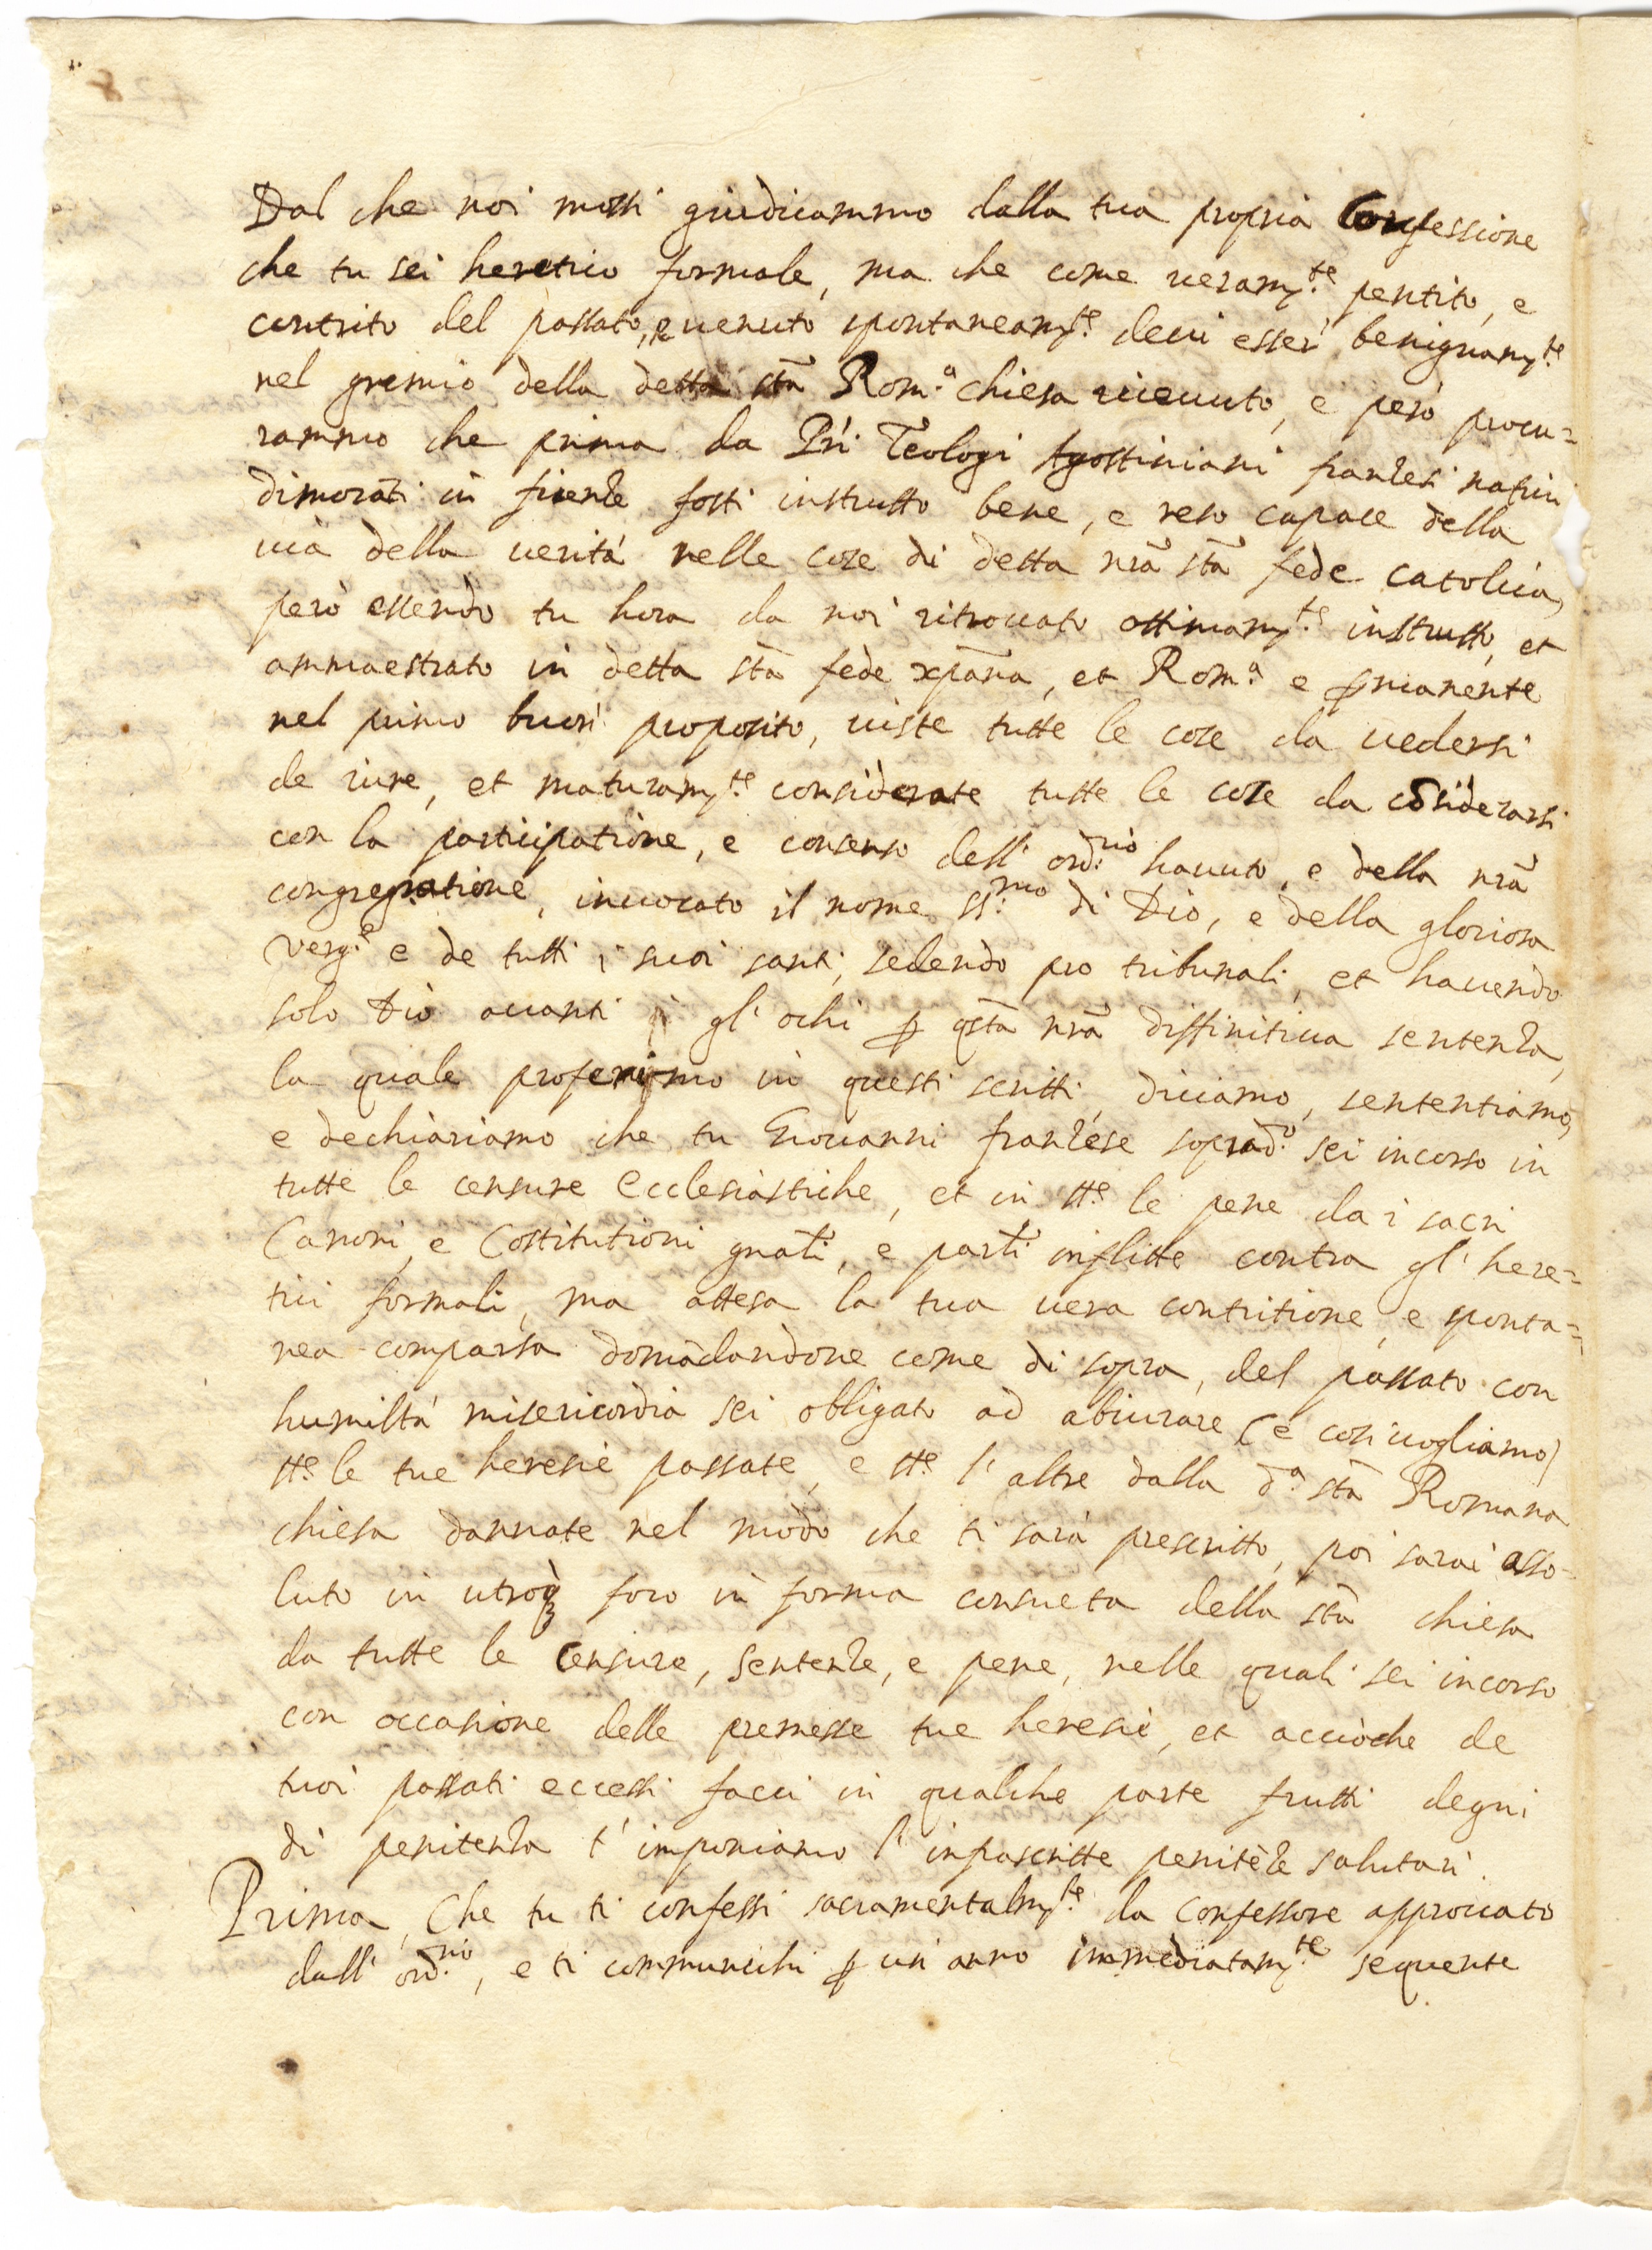 Dal che noi mossi giudicammo dalla tua propria Confessione
che tu sei heretico formale, ma che come veram.te pentito, e
contrito del passato, e venuto spontaneam.te devi esser benignam.te
nel gremio della detta sta Rom.a chiesa ricevuto, e però procu=
rammo che prima da Pri Teologi Agostiniani franzesi nativi
dimorati in firenze fosti instrutto bene, e reso capace della
via della verità nelle cose di detta nra sta fede catolica,
però essendo tu hora da noi ritrovato ottimam.te instrutto, et
ammaestrato in detta sta fede xpana, et Rom.a e pmanente
nel primo buon proposito, viste tutte le cose da vedersi
de iure, et maturam.te considerate tutte le cose da cōsiderarsi
con la participatione, e consenso dell' ord.rio havuto, e della nra
congregatione, invocato il nome SS.mo di Dio, e della gloriosa
Verg.e e de tutti i suoi santi, sedendo pro tribunali, et havendo
solo Dio avanti gl' ochi p qsta nra diffinitiva sentenza,
la quale proferimo in questi scritti, diciamo, sententiamo,
e dechiariamo che tu Giovanni franzese soprad.o sei incorso in
tutte le censure Ecclesiastiche, et in tt.e le pene da i sacri
Canoni, e Costitutioni gnali, e parti inflitte contra gl' here=
tici formali, ma attesa la tua vera contritione, e sponta=
nea comparsa domādandone come di sopra, del passato con
humiltà misericordia sei obligato ad abiurare (e cosi vogliamo)
tt.e le tue heresie passate, e tt.e l' altre dalla d.a sta Romana
chiesa dannate nel modo che ti sarà prescritto, poi sarai asso=
luto in utroq foro in forma consueta della sta chiesa
da tutte le Censure, sentenze, e pene, nelle quali sei incorso
con occasione delle premesse tue heresie, et acciòche de
tuoi passati eccessi facci in qualche parte frutti degni
di penitenza t' imponiamo l' infrascritte penitēze salutari.
Prima, Che tu ti confessi sacramentalm.te da Confessore approvato
dall' ord.rio, e ti communichi p un' anno immediatam.te sequente